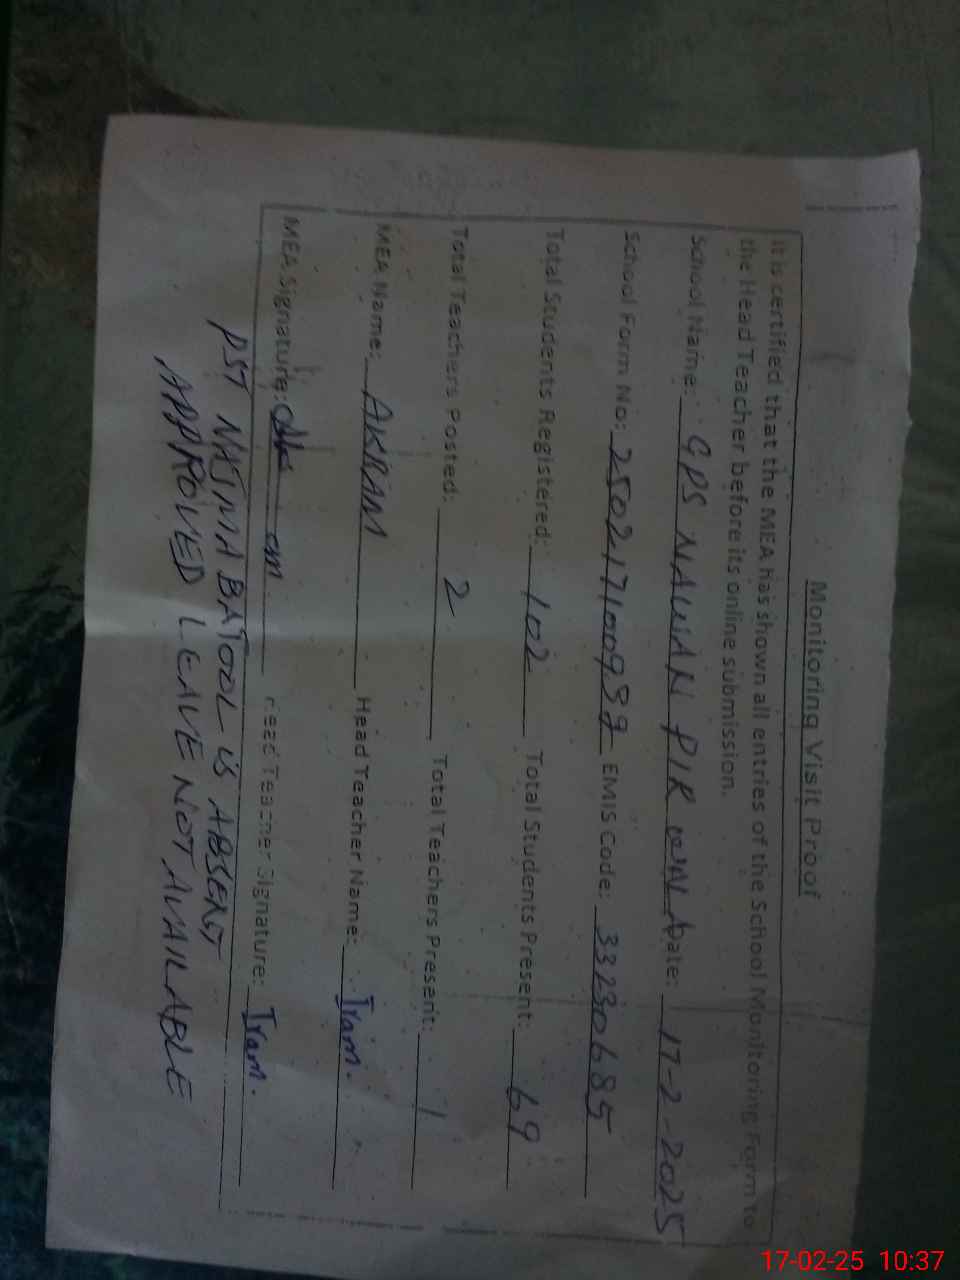 Monitoring Visit Proof
It is certified that the MEA has shown all entries of the School Monitoring Form to
the Head Teacher before its online submission.
School Name: GPS NAWAN PIR WAL Date: 17-2-2025
School Form No: 2502171009939 EMIS Code: 33230685
Total Students Registered: 102 Total Students Present: 69
Total Teachers Posted: 2 Total Teachers Present: 1
MEA Name: AKRAM Head Teacher Name: Iram.
MEA Signature: Head Teacher Signature: Iram.
PST NAJMA BATOOL is ABSENT
APPROVED LEAVE NOT AVAILABLE
17-02-25 10:37